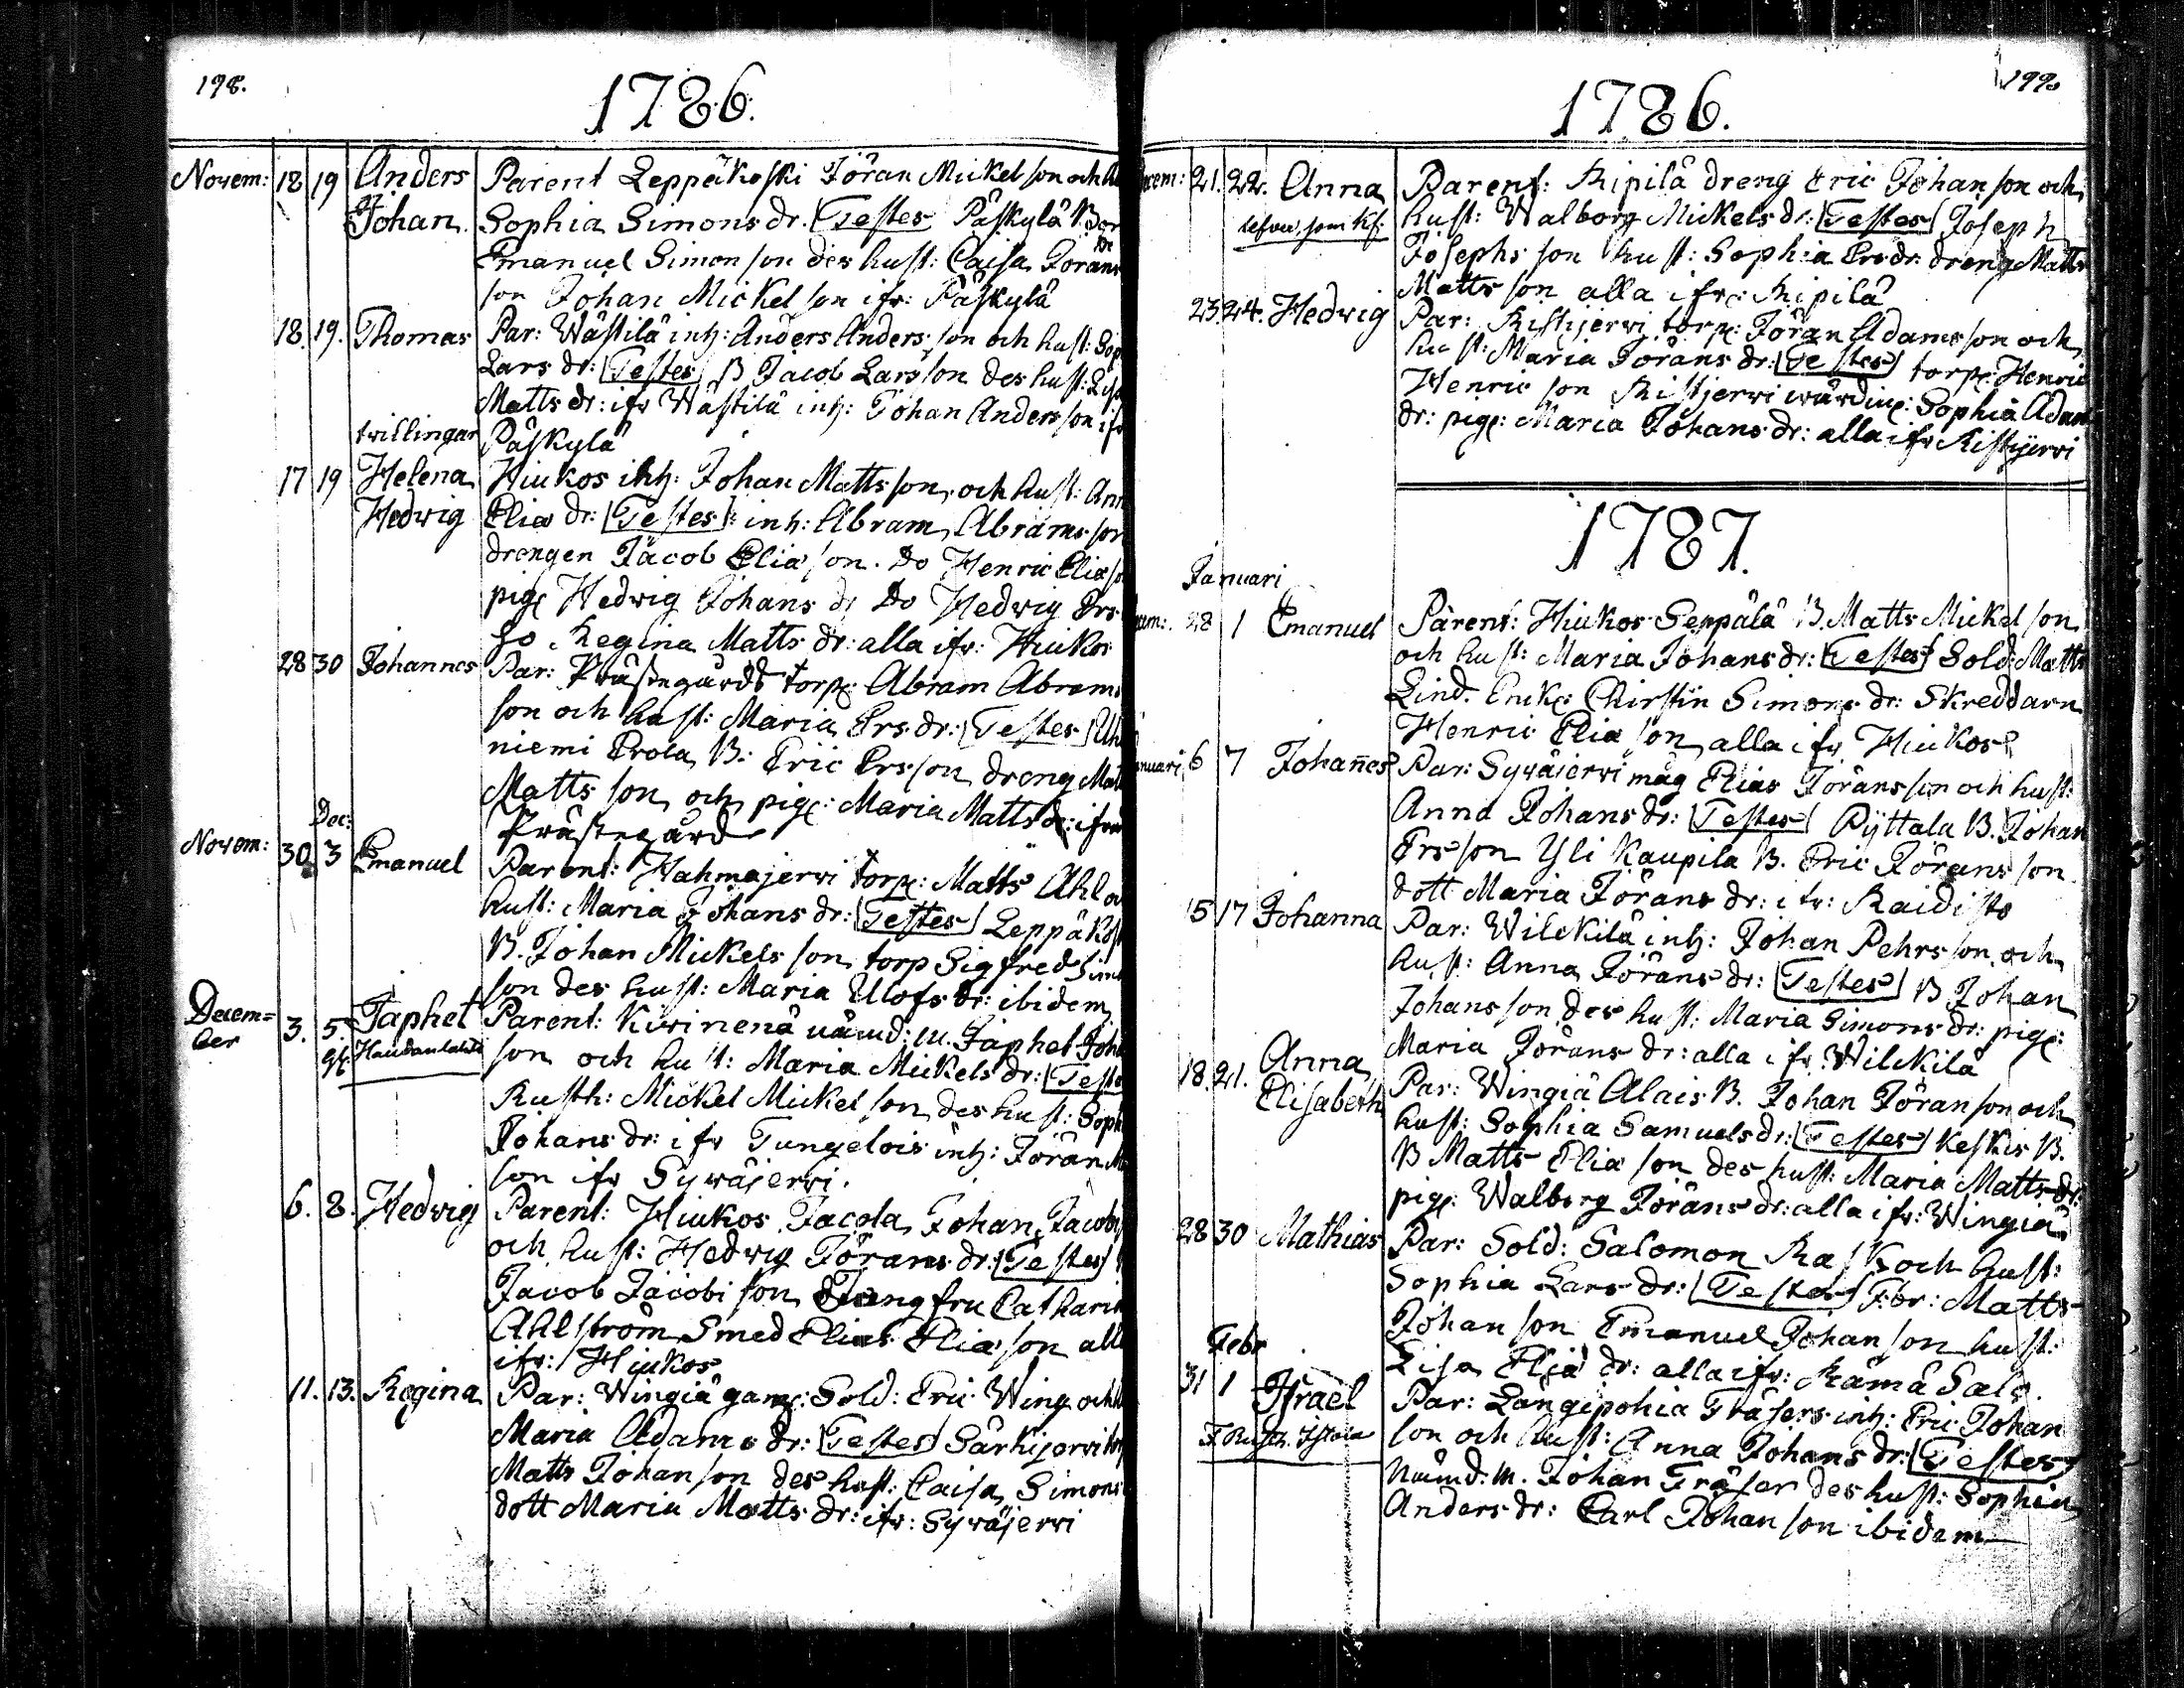 198.
1786.
Novem: 18 19 Anders Parent Leppäkoski Jöran Mickel son och
Johan. Sophia Simons dr. Testes Päskylä B
Emanuel Simon son des hust: Caisa Jörans
son Johan Mickel son ifr: Päskylä
18. 19. Thomas Par: Wästilä inh: Anders Anders son och hust: Sop
Lars dr: Testes B Jacob Lars son des hust:
Matts dr: ifr Wästilä inh: Johan Anders son if
twillingar Päskylä
17 19 Helena Hiukos inh: Johan Matts son och hust: Ann
Hedwig Elia dr: Testes: inh: Abram Abrams son
drengen Jacob Elia son. Do Henric Elia so
pig: Hedwig Johans dr Do Hedwig Ers
Do Regina Matts dr: alla ifr: Hiukos
28 30 Johannes Par: Prästegårds torp: Abram Abrams
son och hust: Maria Ers dr: Testes
niemi Erola B: Eric Ers son dreng Matt
Matts son och pig: Maria Matts dr: ifrå
Prästegård
Dec:
Novem: 30. 3 Emanuel Parent: Hahmajerwi torp: Matts Ahl
hust: Maria Johans dr: Testes Leppäkos
B. Johan Mickels son torp Sigfred Sim
son des hust: Maria Ulofs dr: ibidem
Decem=
ber 3. 5. Japhet Parent: Kiwinenä nämd: m. Japhet Joha
son och hust: Maria Mickels dr: Teste
Rusth: Mickel Mickel son des hust: Soph
Johans dr: ifr Tungelois inh: Jöran
son ifr Sywäjerwi.
6. 8. Hedwig Parent: Hiukos Jacola Johan Jacobi
och hust: Hedwig Jörans dr: Testes
Jacob Jacobi son Jungfru Catharin
Ahlström Smed Elias Elia son all
ifr: Hiukos
11. 13. Regina Par: Wingiä gam: Sold: Eric Wing och
Maria Adams dr: Testes Särkijerwi
Matts Johan son des hust: Caisa Simons
dott Maria Matts dr: ifr: Sywäjerwi
199.
1786.
21. 22. Anna Parent: Ripilä dreng Eric Johan son och
hust: Walborg Mickels dr: Testes Joseph
Josephs son hust: Sophia Ers dr: dreng Matts
Matts son alla ifr: Ripilä
23. 24. Hedwig Par: Ristijerwi torp: Jöran Adams son och
hust: Maria Jörans dr: Testes torp: Henric
Henric son Ristjerwi wärdin: Sophia Adam
dr: pig: Maria Johans dr: alla ifr Ristijerwi
1787.
Januari
28 1 Emanuel Parent: Hiukos Seppälä B. Matts Mickel son
och hust: Maria Johans dr: Testes Sold: Matts
Lind. Enk: Chirstin Simons dr: Skreddarn
Henric Elia son alla ifr Hiukos
6 7 Johañes Par: Sywäjerwi måg Elias Jörans son och hust:
Anna Johans dr: Testes Pyttala B. Johan
Ers son Yli Kaupila B. Eric Jörans son
dott Maria Jörans dr: ifr: Raidisto
15 17 Johanna Par: Wilckilä inh: Johan Pehrs son och
hust: Anna Jörans dr: Testes B Johan
Johans son des hust: Maria Simons dr: pig:
Maria Jörans dr: alla ifr Wilckilä
18. 21. Anna
Elisabeth Par: Wingiä Alais B. Johan Jöran son och
hust: Sophia Samuels dr: Testes Keskis B.
B Matts Elia son des hust: Maria Matts dr:
pig: Walborg Jörans dr: alla ifr: Wingiä
28 30 Mathias Par: Sold: Salomon Rask och hust:
Sophia Lars dr: Testes För: Matts
Johan son Emanuel Johan son hust:
Lisa Elia dr: alla ifr: Rämä Salo.
Febr
31 1 Israel Par: Längipohia Fräsers inh: Eric Johan
son och hust: Anna Johans dr: Testes
Nämd: m. Johan Fräser des hust: Sophia
Anders dr: Carl Johan son ibidem